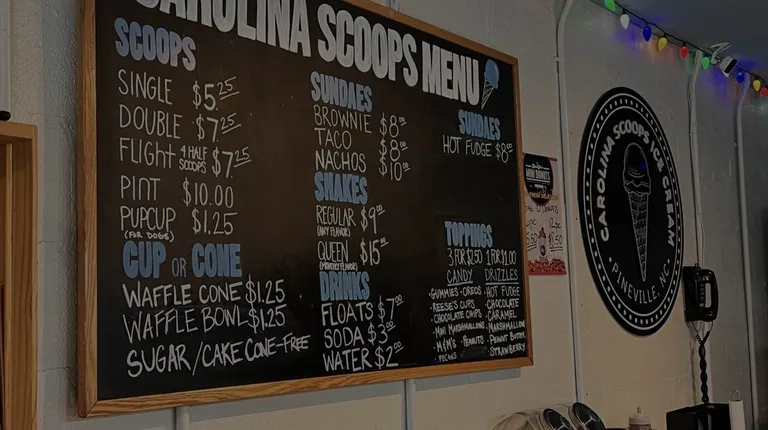 CAROLINA SCOOPS MENU
SCOOPS
SINGLE $5.25
DOUBLE $7.25
FLIGHT 4 HALF SCOOPS $7.25
PINT $10.00
PUPCUP $1.25
(FOR DOGS)
CUP OR CONE
WAFFLE CONE $1.25
WAFFLE BOWL $1.25
SUGAR/CAKE CONE-FREE
SUNDAES
BROWNIE $8.00
TACO $8.00
NACHOS $10.00
SHAKES
REGULAR $9.00
(ANY FLAVOR)
QUEEN $15.00
DRINKS
FLOATS $7.00
SODA $3.00
WATER $2.00
SUNDAES
HOT FUDGE $8.00
TOPPINGS
3 FOR $2.50 1 FOR $1.00
CANDY DRIZZLES
·GUMMIES ·OREOS ·HOT FUDGE
·REESE'S CUPS ·CHOCOLATE
·CHOCOLATE CHIPS ·CARAMEL
·MINI MARSHMALLOWS ·MARSHMALLOW
·M&M'S ·PEANUTS ·PEANUT BUTTER
·PECANS ·STRAWBERRY
MINI DONUTS
CAROLINA SCOOPS ICE CREAM
· PINEVILLE, NC ·